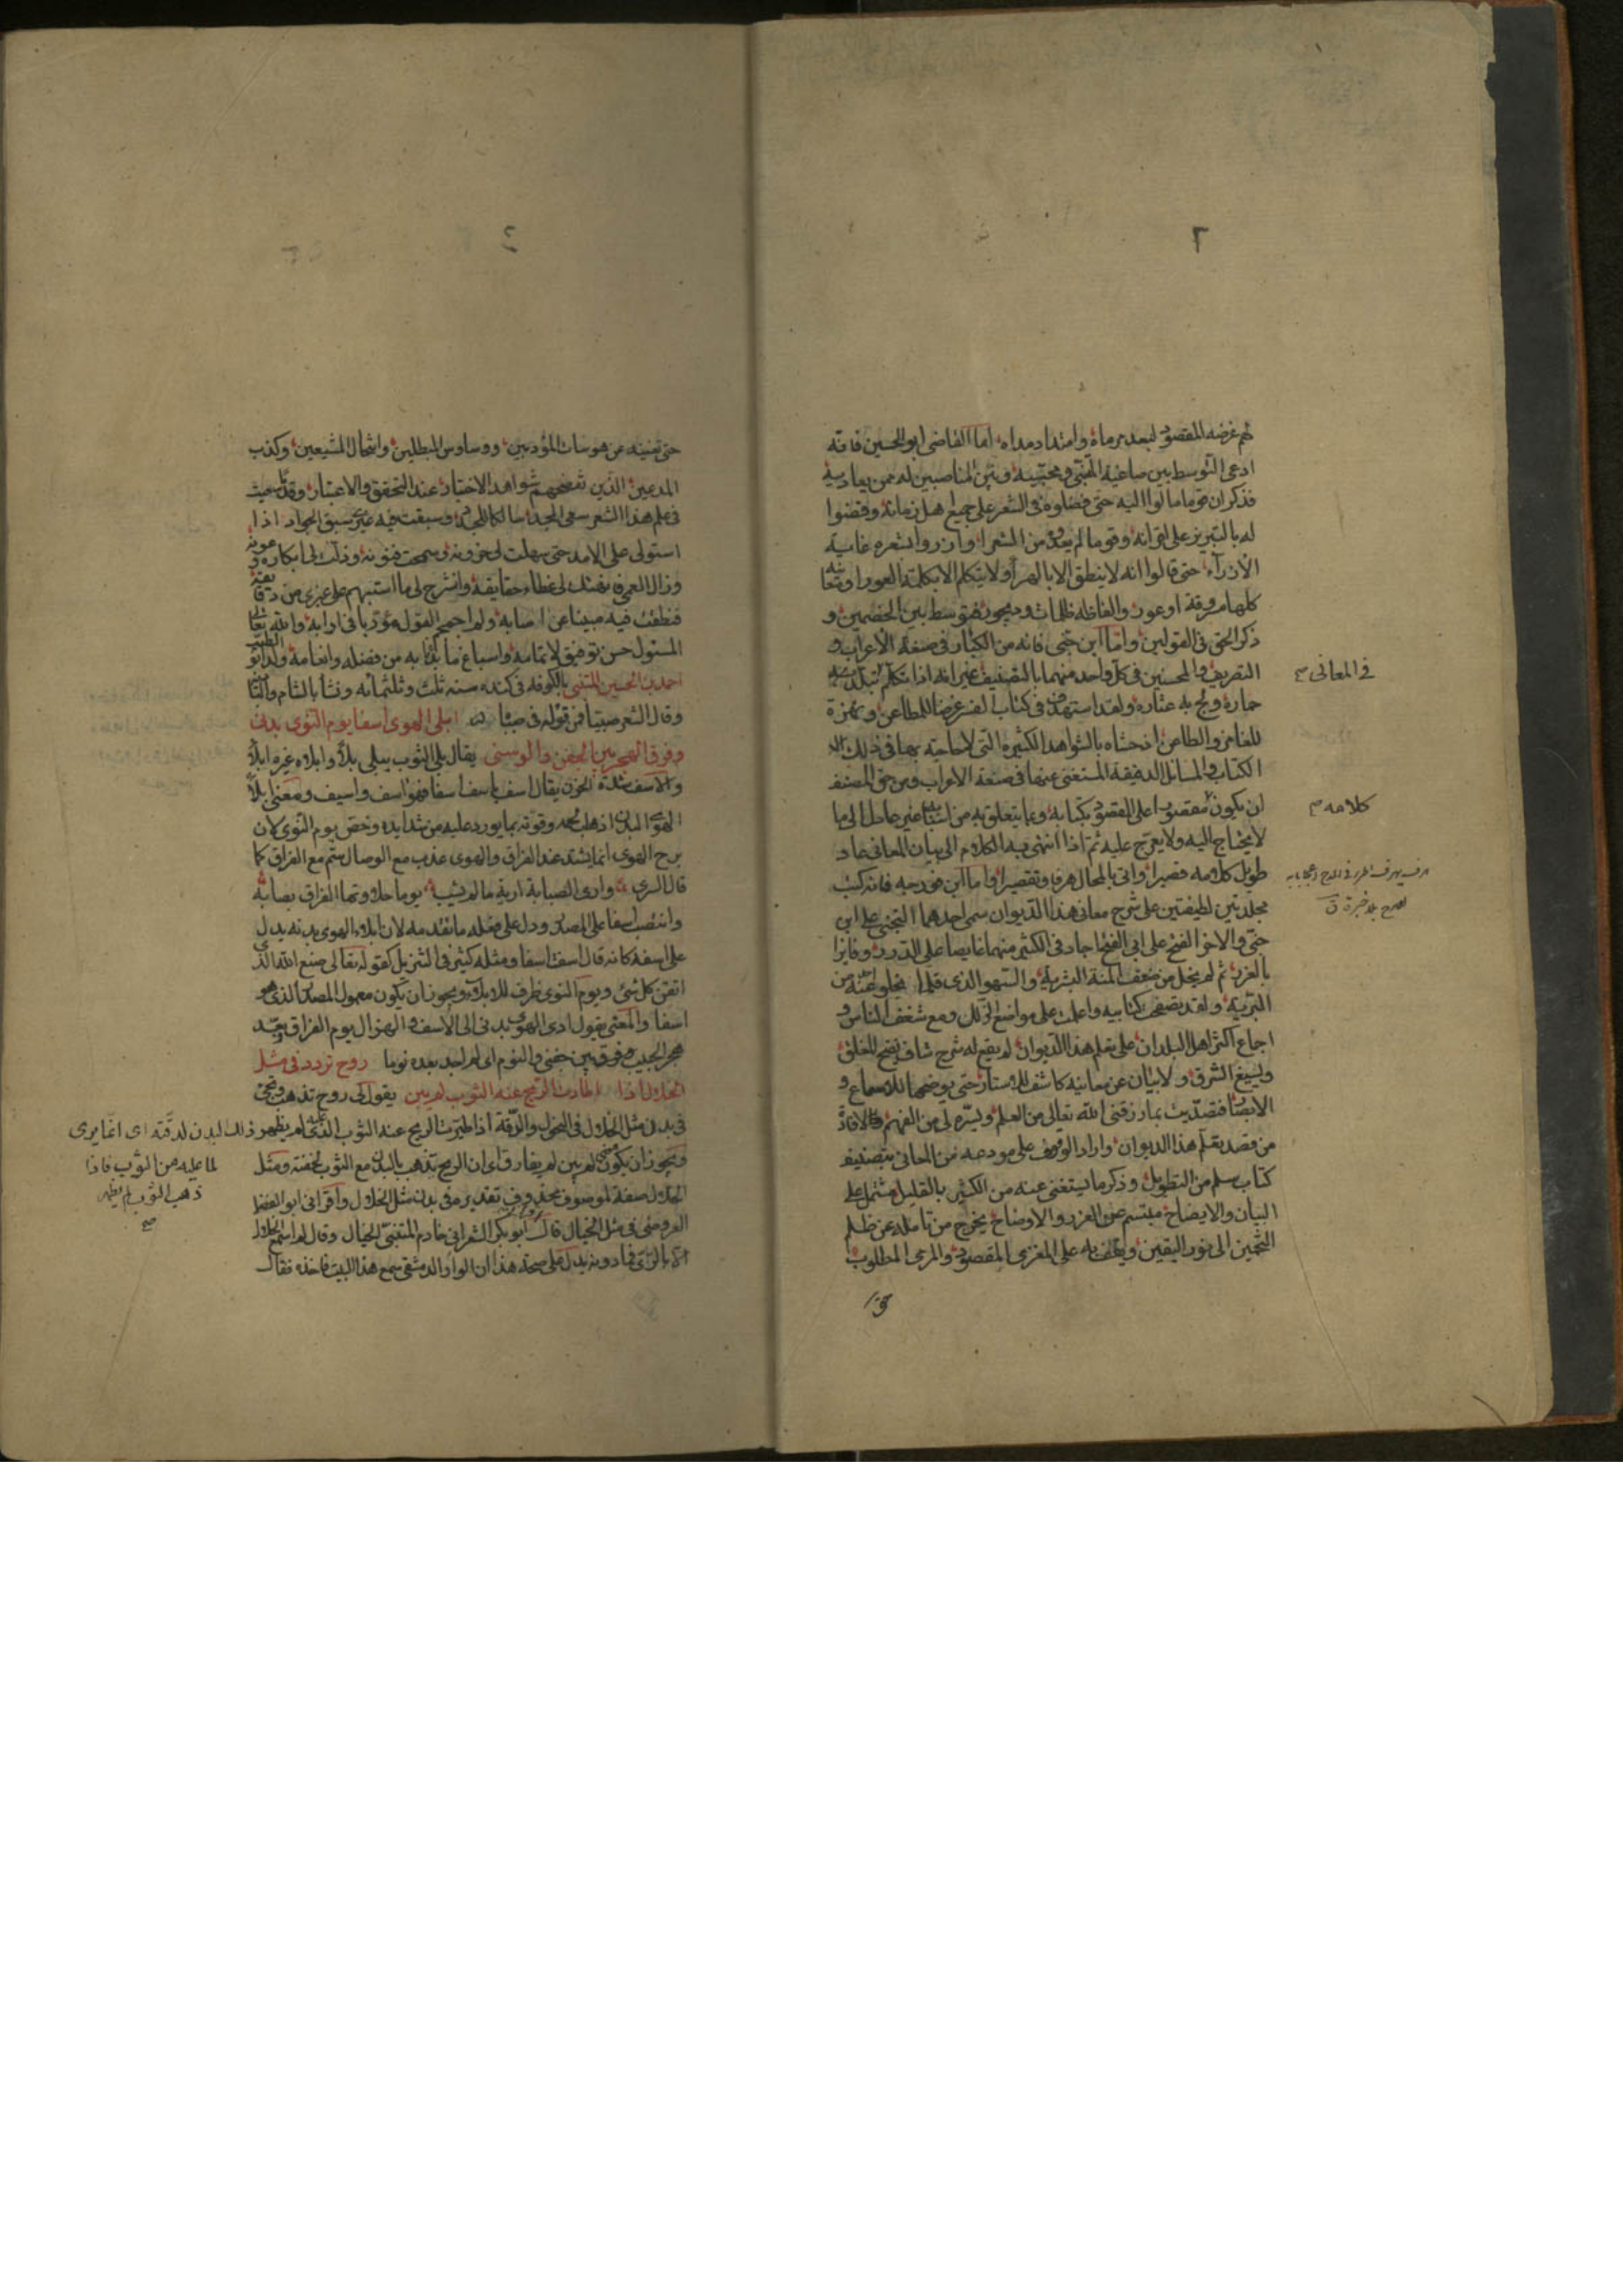 ٢
لهم غرضه المقصود لبعد مرماه وامتداد مداه اما القاضى ابو الحسين فانه
ادعى التوسط بين صاغية المتنبى ومحبيه وبين المناصبين له ممن يعاديه
فذكر ان قوما مالوا اليه حتى فضلوه فى الشعر على جميع اهل زمانه وقضوا
له بالتبريز على اقرانه وقوما لم يعدوه من الشعرا وازروا بشعره غاية
الازرآء حتى قالوا انه لا ينطق الا بالهرآء ولا يتكلم الا بالكلمة العورا ومعانيه
كلها مسروقة او عور والفاظه ظلمات وديجور فتوسط بين الخصمين و
ذكر الحق فى القولين واما ابن جنى فانه من الكبار فى صنعة الاعراب و
التصريف والمحسنين فى كل واحد منهما بالتصنيف غير انه اذا تكلم تبلد
فى المعانى صح
حماره ولج به عثاره ولقد استهدف فى كتاب الفسر غرضا للمطاعن ونهزة
للغامز والطاعن اذ حشاه بالشواهد الكثيرة التى لا حاجة بها فى ذلك
الكتاب والمسائل الدقيقة المستغنى عنها فى صنعة الاعراب ومن حق المصنف
ان يكون مقصورا على المقصود بكتابه وما يتعلق به من اسبابه غير عادل الى ما
كلامه صح
لا يحتاج اليه ولا يعرج عليه ثم اذا انتهى به الكلام الى بيان المعانى عاد
طويل كلامه قصيرا واتى بالمحال هراء وتقصيرا واما ابن فورجه فانه كتب
مجلدتين لطيفتين على شرح معانى هذا الديوان سمى احدهما التجنى على ابن
جنى والاخر الفتح على ابى الفتح اجاد فى الكثير منهما غايصا على الدرر وفايزا
بالغرر ثم لم يخل من ضعف المنة البشرية والسهو الذى قلما يخلو عنه احد من
البرية ولقد تصفحت كتابيه واعلمت على مواضع الزلل ومع شغف الناس و
اجماع اكثر اهل البلدان على تعلم هذا الديوان لم يقع له شرح شاف يفتح المغلق
ويسيغ الشرق ولا بيان عن معانيه كاشف للاستار حتى يوضحها للاسماع و
الابصار فتصديت بما رزقنى الله تعالى من العلم ويسره لى من الفهم لافادة
من قصد تعلم هذا الديوان واراد الوقوف على مودعه من المعانى بتصنيف
كتاب سلم من التطويل وذكر ما يستغنى عنه من الكثير بالقليل مشتمل على
البيان والايضاح مبتسم عن الغرر والاوضاح يخرج من تامله عن ظلم
التخمين الى نور اليقين ويقف به على المغزى المقصود والمرمى المطلوب
حتى
حتى تغنيه عن هوسات المؤدبين ووساوس المبطلين وانتحال المتشبعين وكذب
المدعين الذين تفضحهم شواهد الاختبار عند التحقق والاعتبار وقد سعيت
فى علم هذا الشعر سعى المجد سالكا للجدد وسبقت فيه غيرى سبق الجواد اذا
استولى على الامد حتى سهلت لى حزونه وسمحت فنونه وذلت لى ابكاره وعونه
وزال العمى فانهتك لى غطاء حقايقه وانشرح لى ما استبهم على غيرى من دقايقه
فنطقت فيه مبينا عن اصابة ولم اجمجم القول مؤربا فى ارابه والله تعالى
المسئول حسن توفيق لاتمامه واسباغ ما بدأنا به من فضله وانعامه ولد ابو الطيب
احمد بن الحسين المتنبى بالكوفه فى كنده سنه ثلث وثلثمائه ونشا بالشام
وقال الشعر صبيا فمن قوله فى صباه ابلى الهوى اسفا يوم النوى بدنى
وفرق الهجر بين الجفن والوسن يقال بلى الثوب يبلى بلاً وابلاه غيره ابلاً
والاسف شدة الحزن يقال اسف ياسف اسفا فهو اسف واسيف ومعنى ابلاً
الهوى البدن اذهاب لحمه وقوته بما يورد عليه من شدايده وخص يوم النوى لان
برح الهوى انما يشتد عند الفراق والهوى عذب مع الوصال سم مع الفراق كما
قال السرى وارى الصبابة ارية ما لم يشب يوما حلاوتها الفراق بصابه
وانتصب اسفا على المصدر ودل على فعله ما تقدمه لان ابلاء الهوى بدنه يدل
على اسفه كانه قال اسفت اسفا ومثله كثير فى التنزيل كقوله تعالى صنع الله الذى
اتقن كل شئ ويوم النوى ظرف للابلاء ويجوز ان يكون معمول المصدر الذى هو
اسفا والمعنى يقول ادى الهوى بدنى الى الاسف والهزال يوم الفراق وبعد
هجر الحبيب فرق بين جفنى والنوم اى لم اجد بعده نوما روح تردد فى مثل
الخلال اذا اطارت الريح عنه الثوب لم يبن يقول لى روح تذهب وتجئ
فى بدن مثل الخلال فى النحول والدقة اذا طيرت الريح عنه الثوب الذى عليه لم يظهر ذلك البدن لدقته اى انما يرى
لما عليه من الثوب فاذا
ذهب الثوب لم يظهر
صح
ويجوز ان يكون معنى لم يبن لم يفارق اى ان الريح تذهب بالبدن مع الثوب لخفته ومثل
الخلال صفة لموصوف محذوف تقديره فى بدن مثل الخلال واقرأنى ابو الفضل
العروضى فى مثل الخيال قال اقرأنى ابو بكر الشعرانى خادم المتنبى الخيال وقال لم اسمع الخلال
الا بالرى فما دونه يدل على صحة هذا ان الواواء الدمشقى سمع هذا البيت فاخذه فقال